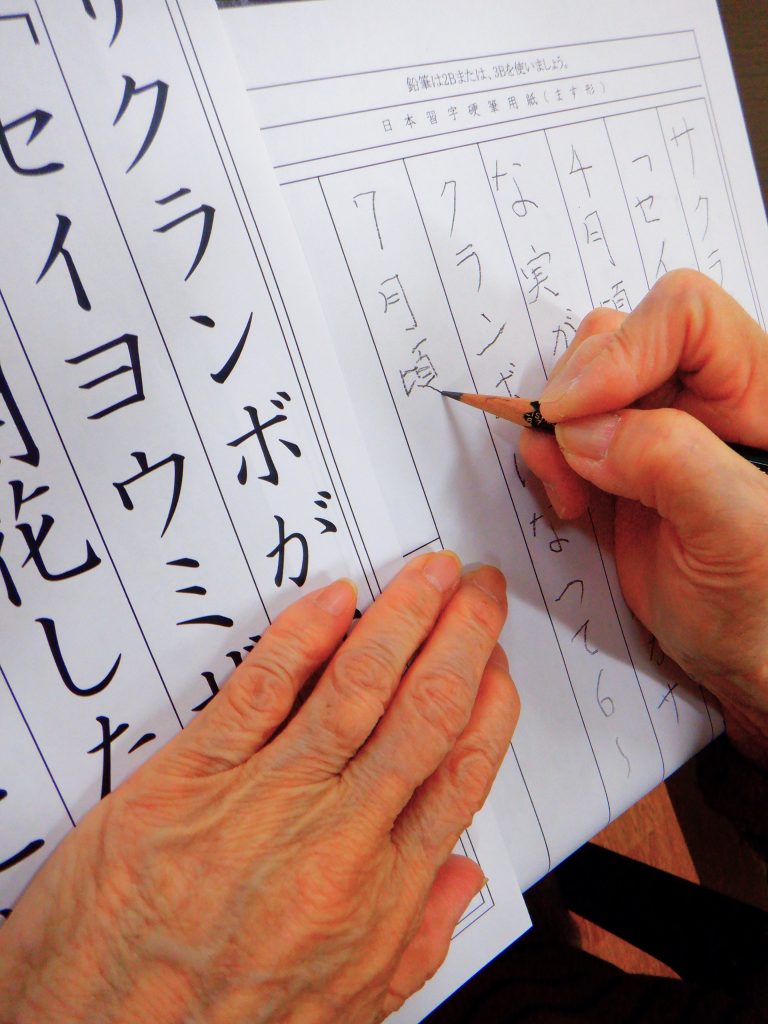 鉛筆は2Bまたは、3Bを使いましょう。
日本習字硬筆用紙(ます形)
サクラ
「セイ
4月頃
な実が がサ
クランボ なって6〜
7月頃
サクランボが
「セイヨウミザ
花した